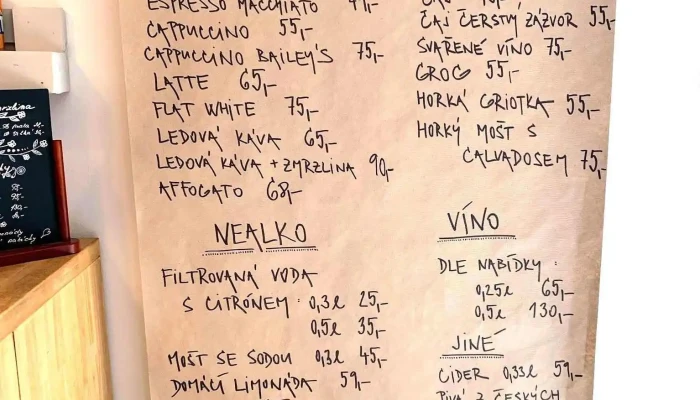 ESPRESSO MACCHIATO
CAPPUCCINO 55,-
CAPPUCCINO BAILEY'S 75,-
LATTE 65,-
FLAT WHITE 75,-
LEDOVÁ KÁVA 65,-
LEDOVÁ KÁVA + ZMRZLINA 90,-
AFFOGATO 68,-
NEALKO
FILTROVANÁ VODA
S CITRÓNEM : 0,3l 25,-
0,5l 35,-
MOŠT SE SODOU 0,3l 45,-
DOMÁCÍ LIMONÁDA 59,-
ČAJ ČERSTVÝ ZÁZVOR 55,-
SVAŘENÉ VÍNO 75,-
GROG 55,-
HORKÁ GRIOTKA 55,-
HORKÝ MOŠT S
CALVADOSEM 75,-
VÍNO
DLE NABÍDKY :
0,25l 65,-
0,5l 130,-
JINÉ
CIDER 0,33l 59,-
PIVA Z ČESKÝCH